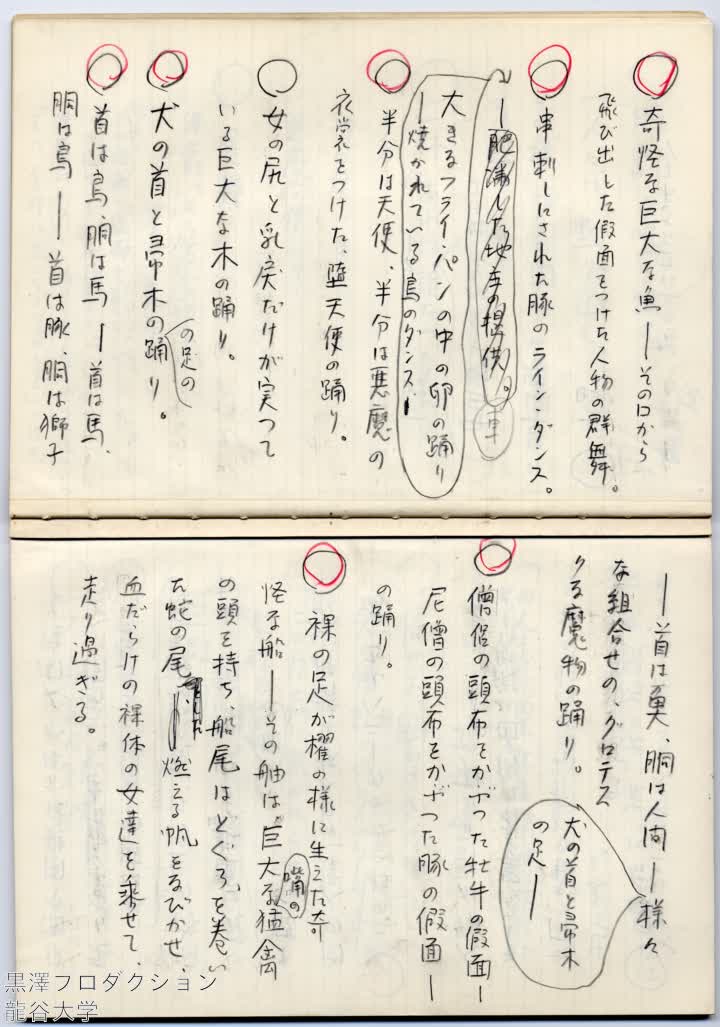 奇怪な巨大な魚――その口から
飛び出した仮面をつけた人物の群舞。
串刺しにされた豚のライン・ダンス。
――肥満した地主の提供。
車
大きなフライパンの中の卵の踊り
――焼かれている鳥のダンス
半分は天使、半分は悪魔の
衣裳をつけた、堕天使の踊り。
女の尻と乳房だけが実つて
いる巨大な木の踊り。
犬の首と帚木の踊り。
の足の
首は鳥、胴は馬――首は馬、
胴は鳥――首は豚、胴は獅子
――首は魚、胴は人間――様々
な組合せの、グロテス
クな魔物の踊り。
犬の首と帚木
の足――
僧侶の頭布をかぶつた牡牛の仮面――
尼僧の頭布をかぶつた豚の仮面――
の踊り。
裸の足が櫂の様に生えた奇
怪な船――その舳は、巨大な猛禽
嘴の
の頭を持ち、船尾はとぐろを巻い
た蛇の尾、燃える帆をなびかせ、
血だらけの裸体の女達を乗せて、
走り過ぎる。
黒澤プロダクション
龍谷大学